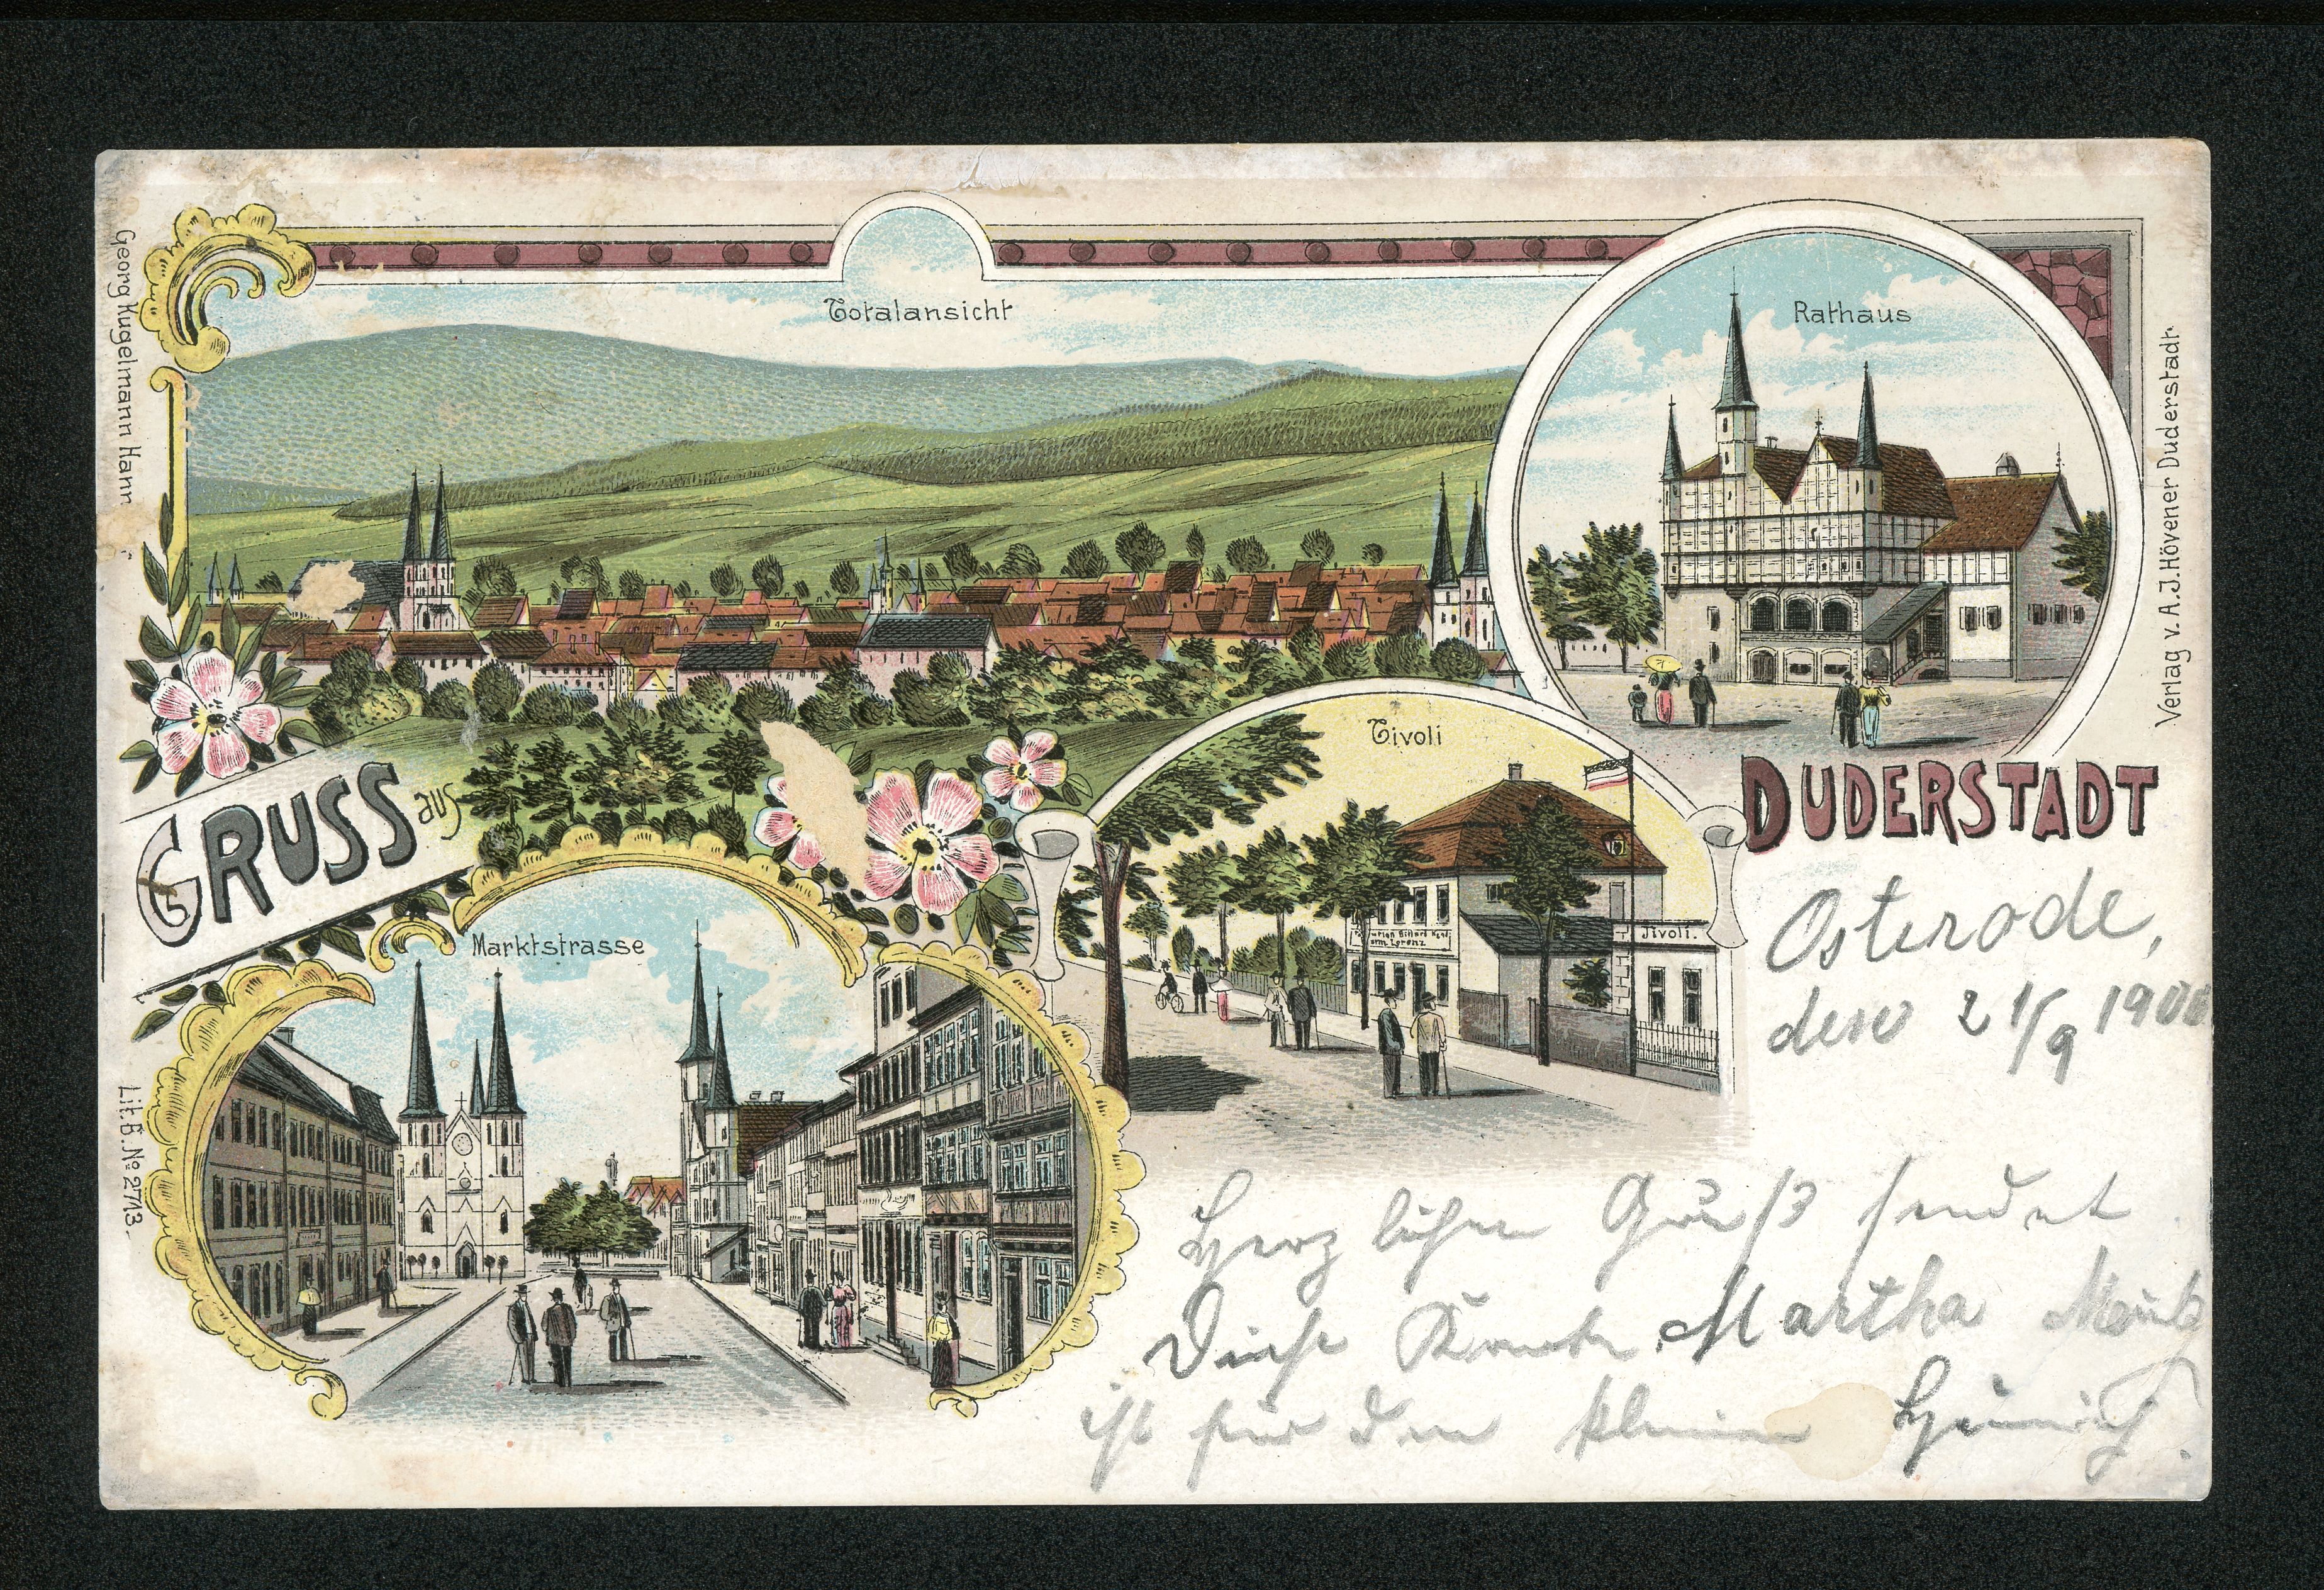 Georg Kugelmann Hann
Totalansicht
Rathaus
Verlag v. A.J. Hövener Duderstadt.
Tivoli
GRUSS aus
DUDERSTADT
Tivoli.
Lorenz
Marktstrasse
Lit. B. No 2713.
Osterode,
den 21/9 1900
Herzlichen Gruß sendet
Diese Karte Martha
ist für den kleinen Heinrich.